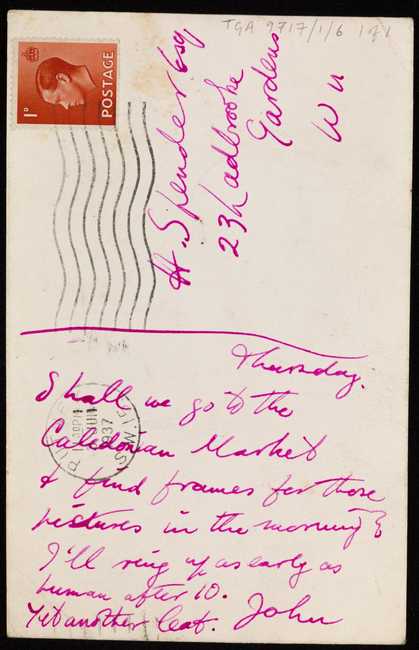 TGA 9717/1/6 1 of 1
POSTAGE
1D
H. Spender Esq
23 Ladbrooke
Gardens
W 11
Thursday.
Shall we go to the
Caledonian Market
& find frames for those
pictures in the morning
I'll ring up as early as
human after 10.
Yet another Cat. John
10 PM
JUN
1937
S.W.1